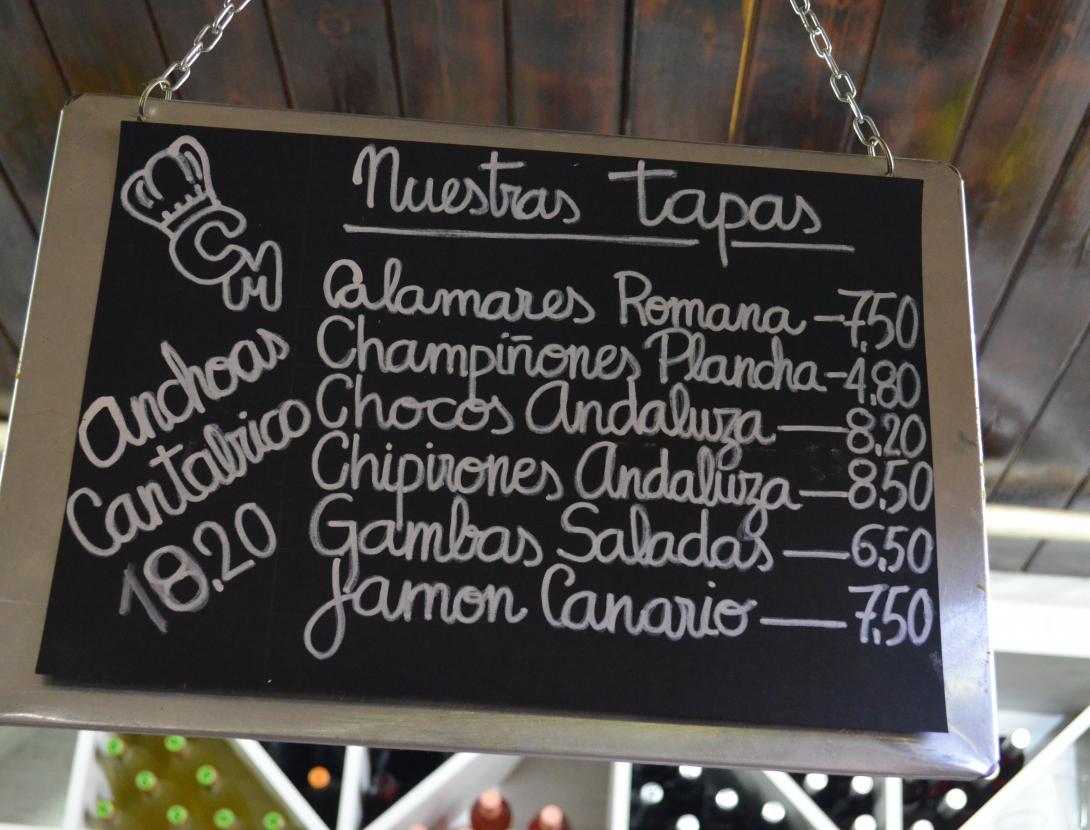 Nuestras tapas
CM
Calamares Romana - 7,50
Champiñones Plancha - 4,80
Chocos Andaluza — 8,20
Chipirones Andaluza — 8,50
Gambas Saladas — 6,50
Jamon Canario — 7,50
Anchoas
Cantabrico
18.20